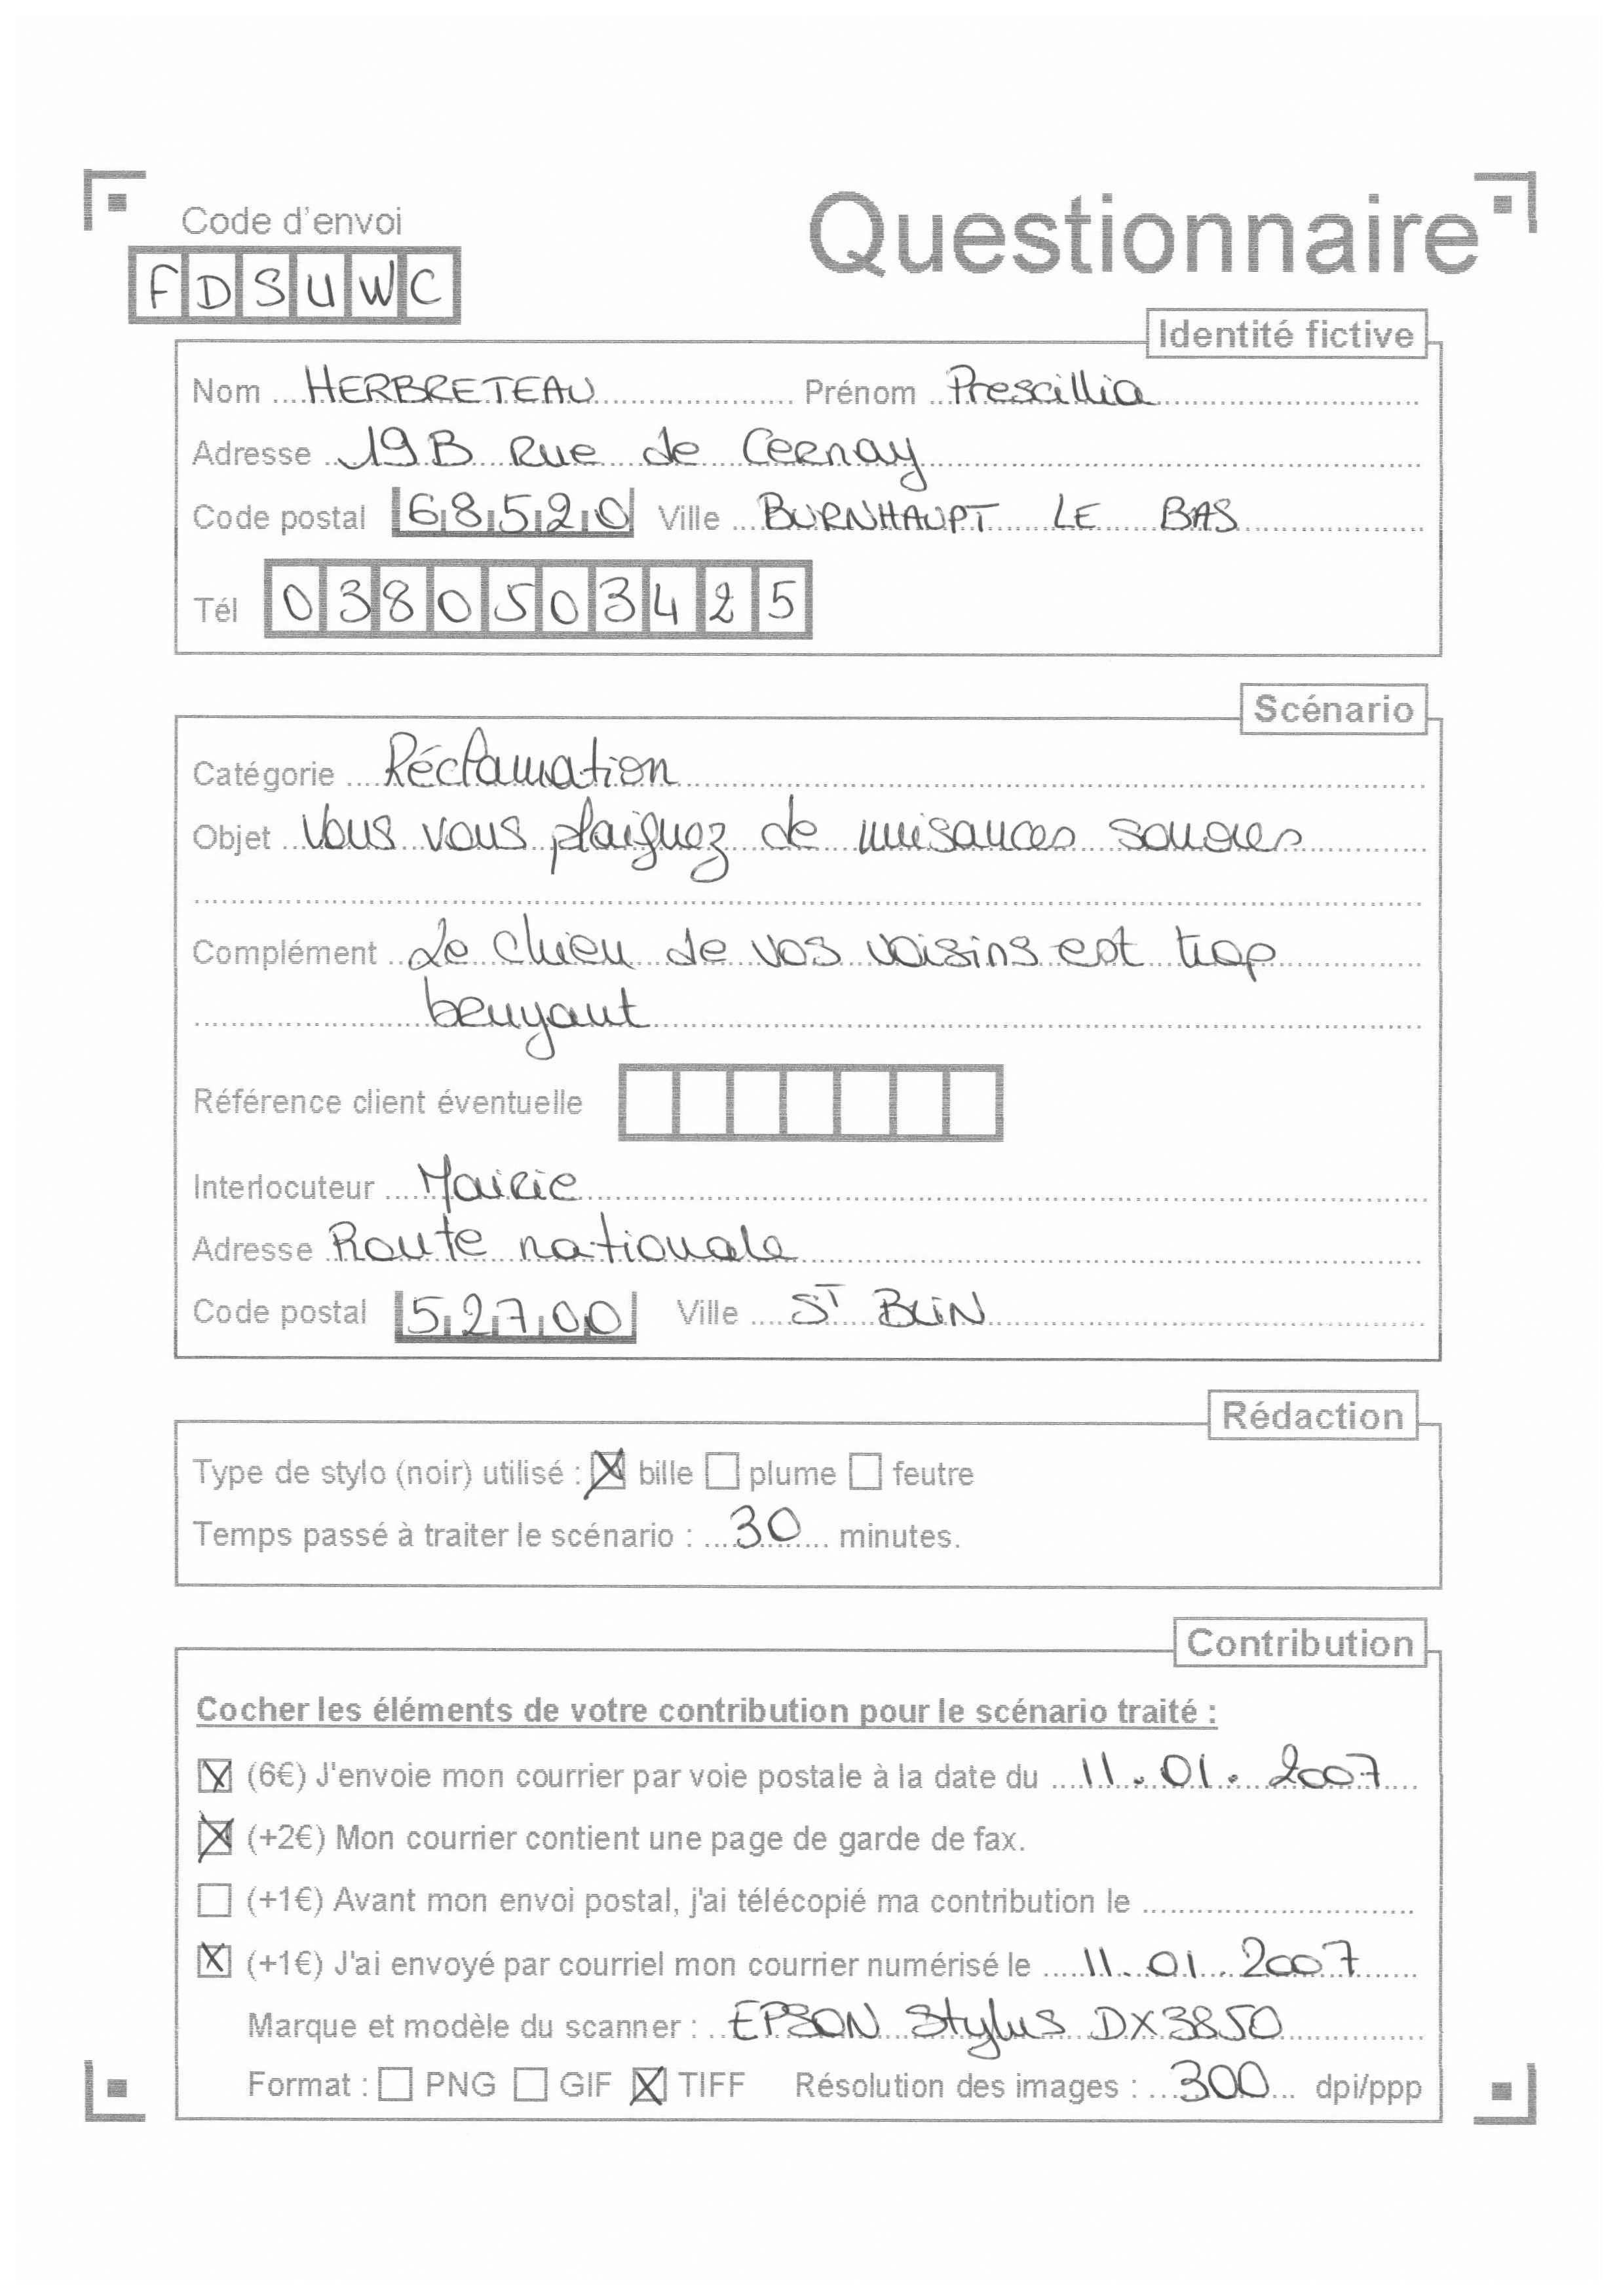 Code d'envoi
Questionnaire
FDSUWC
Identité fictive
Nom HERBRETEAU Prénom Prescillia
Adresse 19B Rue de Cernay
Code postal 68520 Ville BURNHAUPT LE BAS
Tél 0380503425
Scénario
Catégorie Réclamation
Objet Vous vous plaignez de nuisances sonores
Complément Le chien de vos voisins est trop
bruyant
Référence client éventuelle
Interlocuteur Mairie
Adresse Route nationale
Code postal 52700 Ville ST BLIN
Rédaction
Type de stylo (noir) utilisé : bille plume feutre
Temps passé à traiter le scénario : 30 minutes.
Contribution
Cocher les éléments de votre contribution pour le scénario traité :
(6€) J'envoie mon courrier par voie postale à la date du 11.01.2007
(+2€) Mon courrier contient une page de garde de fax.
(+1€) Avant mon envoi postal, j'ai télécopié ma contribution le
(+1€) J'ai envoyé par courriel mon courrier numérisé le 11.01.2007
Marque et modèle du scanner : EPSON Stylus DX3850
Format : PNG GIF TIFF Résolution des images : 300 dpi/ppp